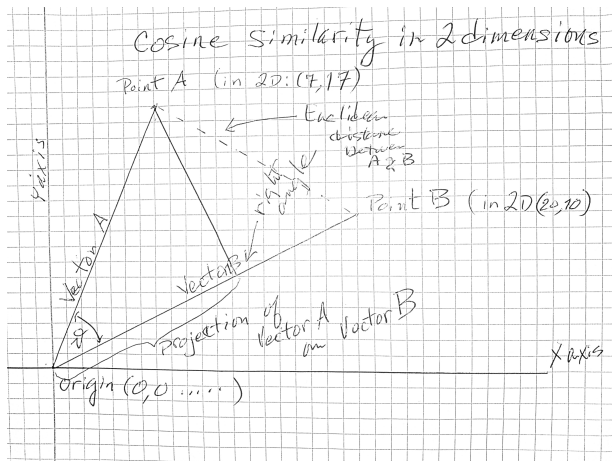 Cosine Similarity in 2 dimensions
Point A (in 2D: (7,17)
Euclidean
distance
between
A & B
right
angle
Y axis
Point B (in 2D (20,10)
Vector A
Vector B
ϑ
projection of
Vector A
on Vector B
X axis
origin (0,0 ......)